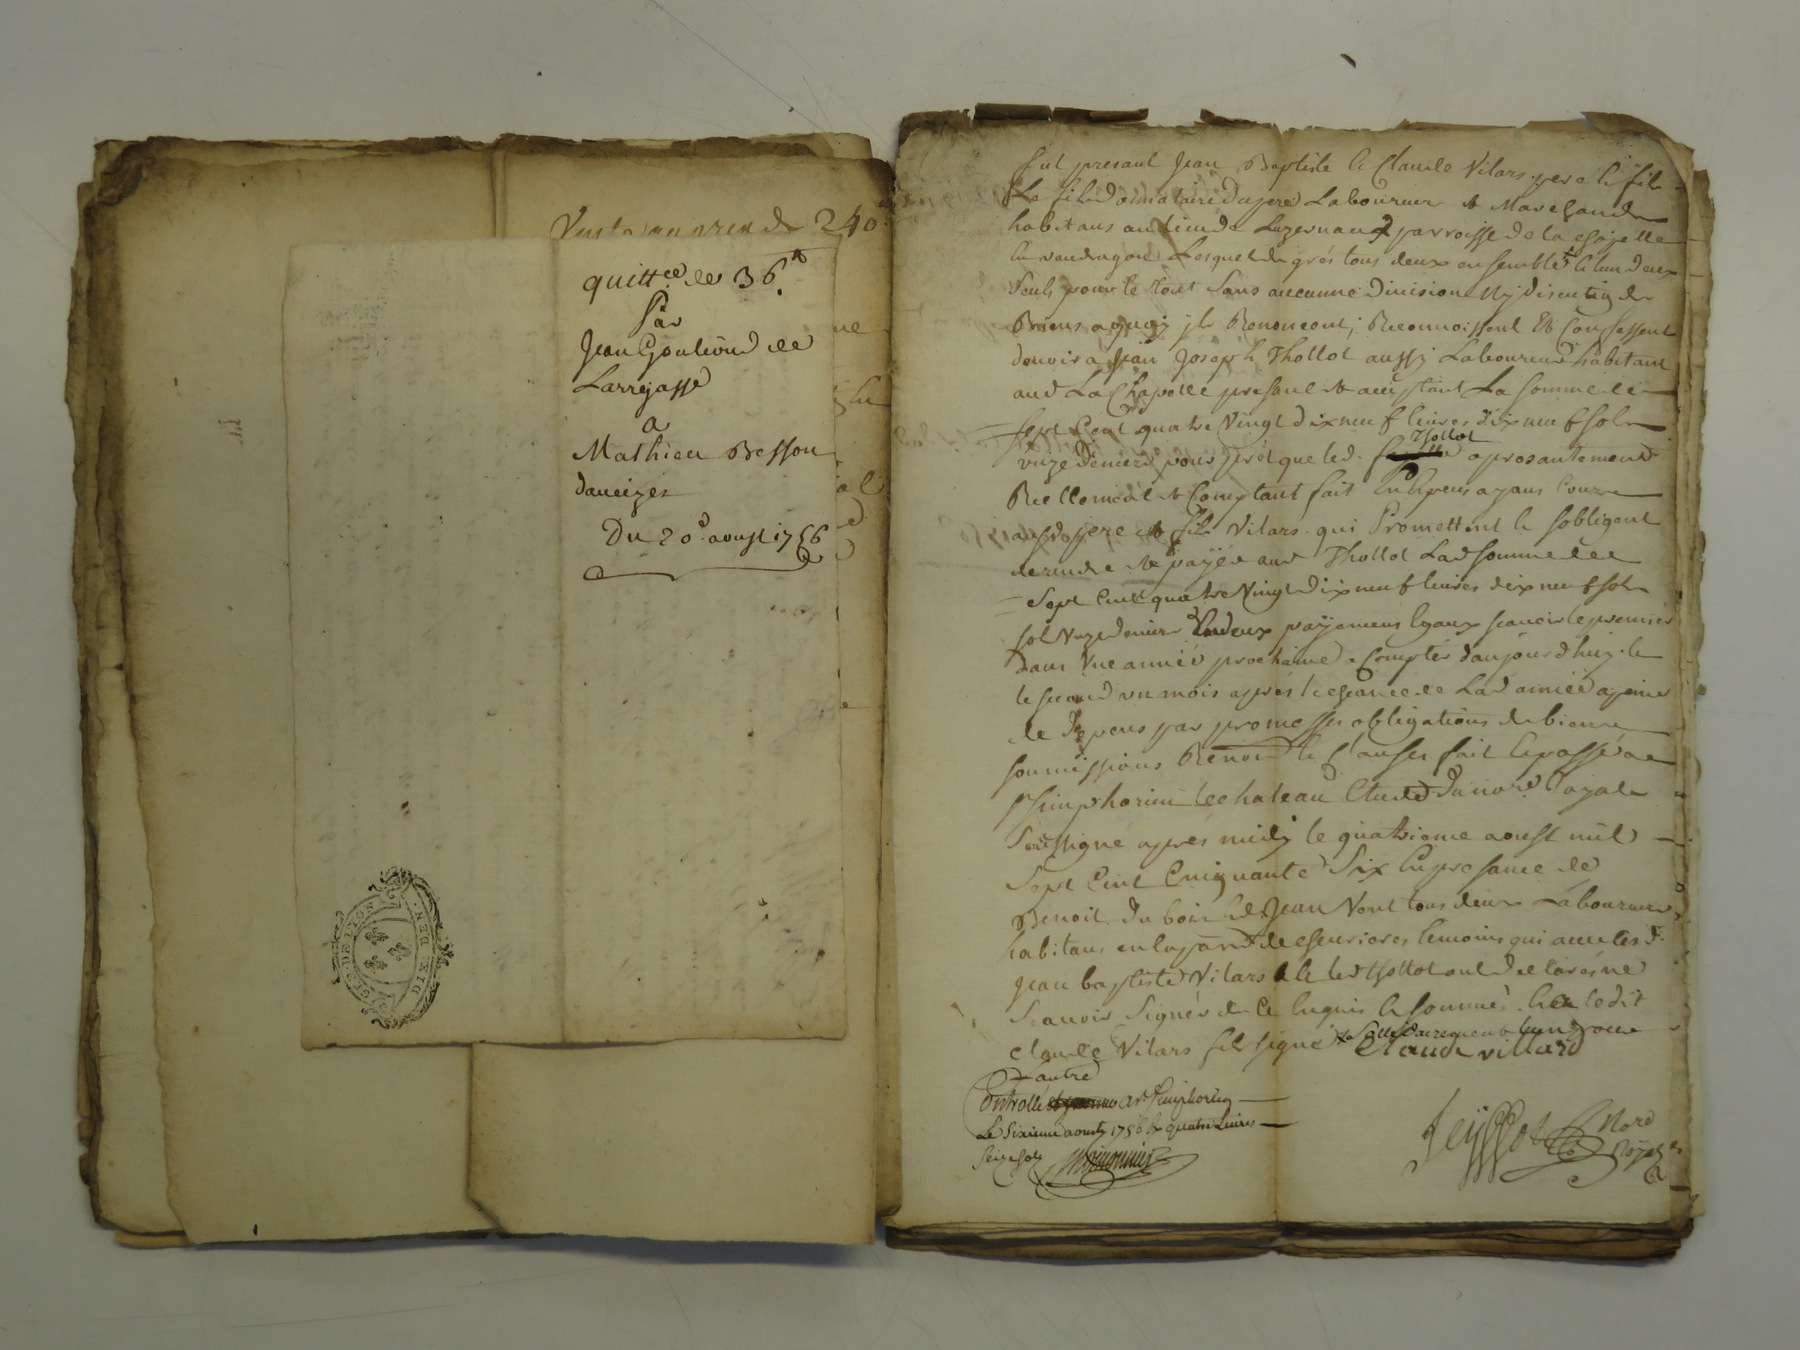 240
quitt.ce de 36 #
Par
Jean Goutiond de
Larrejasse
a
Mathieu Besson
daveizes
Du 20.e aoust 1756
GEN. DE LYON
DIX DEN.
fut presant Jean Baptiste & Claude Vilars pere & fils
Le fils donnataire du pere Laboureur & Marchand
habitans au lieu de Luzernaud parroisse de la chapelle
en vaudragon Lesquels de grés tous deux ensemble & lun deux
Seuls pour le tout Sans aucunne Division Ny discution de
Biens aquoy ils Renoncent, Reconnoissent Et Confessent
devoir a Jean Joseph Thollot aussy Laboureur habitant
aud La Chapelle presant & acceptant La Somme de
Sept Cent quatre Vingt dix neuf livres dix neuf sols
unze Deniers pour prêt que led. Thollot a presantement
Reellement & Comptant fait En Especes ayans Cours
ausd pere & fils Vilars qui Promettent & Sobligent
de rendre & payer aud Thollot Lad Somme de
Sept Cent quatre Vingt Dix neuf livres dix neuf sols
sol Unze denier En deux payemens Egaux scavoir le premier
Dans Une année prochaine a Compter d'aujourd'huy &
le second un mois aprés de Lad année a peine
de Depens par promesses obligations de biens
soumissions Renon & Clauses fait & passé a
St Simphorien le chateau Etude Du no.re Royale
Soussigné aprés midy le quatrieme aoust mil
Sept Cent Cinquante Six En presance de
Benoit Du bois & Jean Vont tous deux Laboureurs
habitans en la parr de chevrieres temoins qui avec les d.
Jean baptiste Vilars & led Thollot ont declaré ne
Scavoir Signer de Ce Enquis & sommés. & a ledit
Claude Vilars fils signé & Sollidairement lun pour
L'autre
Claude villard
Controllé a St Simphorien
Le Sixieme aoust 1756 R quatre Livres
Seize sols
Nore
Royal